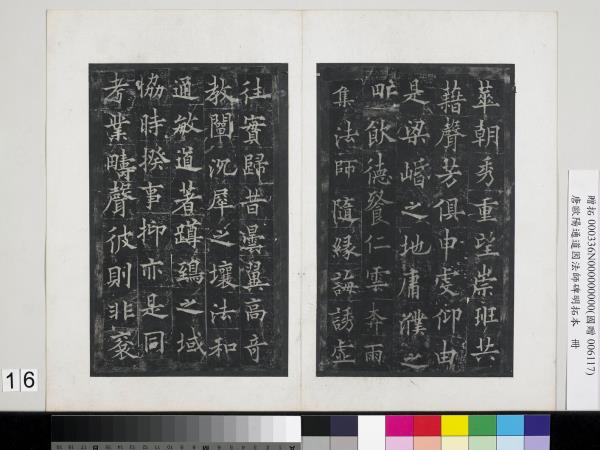 莖朝秀重望崇班共
藉聲芳俱申虔仰由
是梁崏之地庸濮之
甿飲德餐仁雲奔雨
集法師隨緣誨誘虛
往實歸昔曇翼高奇
教闡沉犀之壤法和
通敏道著蹲鵄之域
協時揆事抑亦是同
考業疇聲彼則非裒
贈拓 000336N000000000(國贈 006117)
唐歐陽通道因法師碑明拓本 冊
16